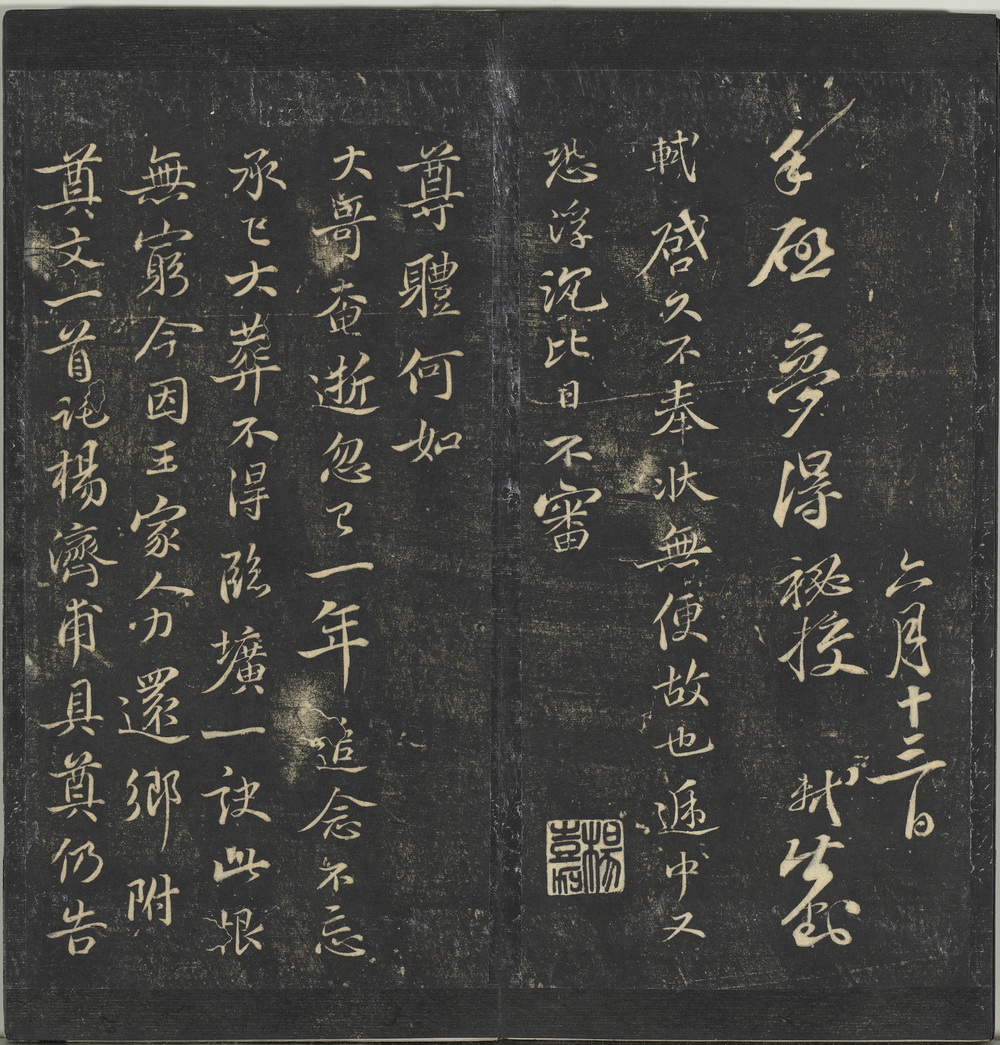 六月十三日
手啟夢得秘校 軾
軾啓久不奉狀無便故也遞中又
恐浮沉比日不審
尊體何如
大哥奄逝忽已一年追念不忘
承已大葬不得臨壙一訣此恨
無窮今因王家人力還鄉附
奠文一首託楊濟甫具奠仍告